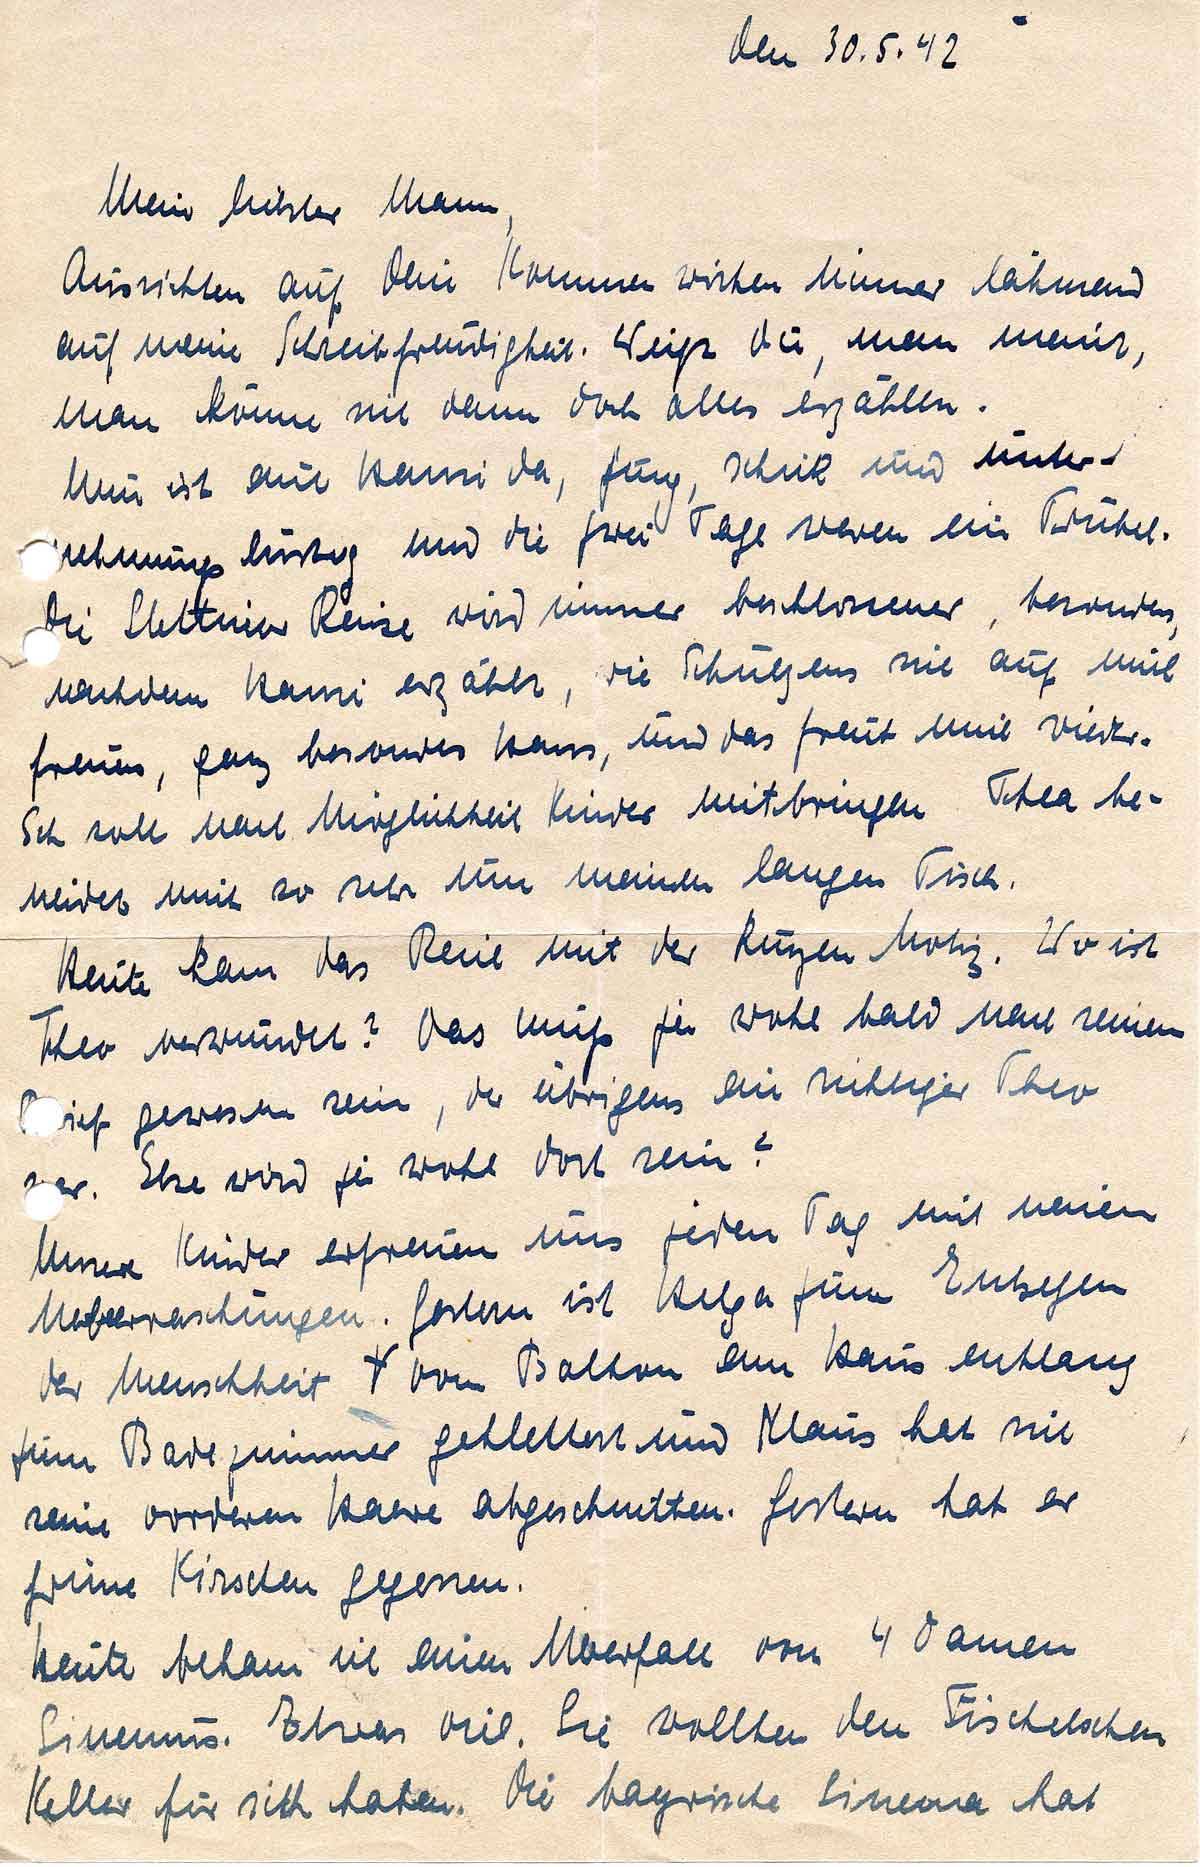 den 30.5.42
Mein liebster Mann,
Aussichten auf Dein Kommen wirken immer lähmend
auf meine Schreibfreudigkeit. Weißt du, man meint,
man könne sie dann doch alles erzählen.
Nun ist auch Hansi da, jung, schick und unter-
nehmungslustig und die zwei Tage waren ein Trubel.
Die Stettiner Reise wird immer beschlossener, besonders,
nachdem Hansi erzählt, wie Schulzens sich auf mich
freuen, ganz besonders Hans, und das freut mich wieder.
Ich soll nach Möglichkeit Kinder mitbringen Thea be-
neidet mich so sehr um meinen langen Tisch.
Heute kam das mit der kurzen Notiz. Wo ist
Theo verwundet? Das muß ja wohl bald nach seinem
Brief gewesen sein, der übrigens ein richtiger Theo
war. Else wird ja wohl dort sein?
Unsere Kinder erfreuen uns jeden Tag mit neuen
Ueberraschungen. Gestern ist Helga zum Entsetzen
der Menschheit vom Balkon am Haus entlang
zum Badezimmer geklettert und Klaus hat sich
seine vorderen Haare abgeschnitten. Gestern hat er
grüne Kirschen gegessen.
Heute bekam ich einen Überfall von 4 Damen
Sinemus. Etwas viel. Sie wollten den Tischelschen
Keller für sich haben. Die bayrische Sinema hat